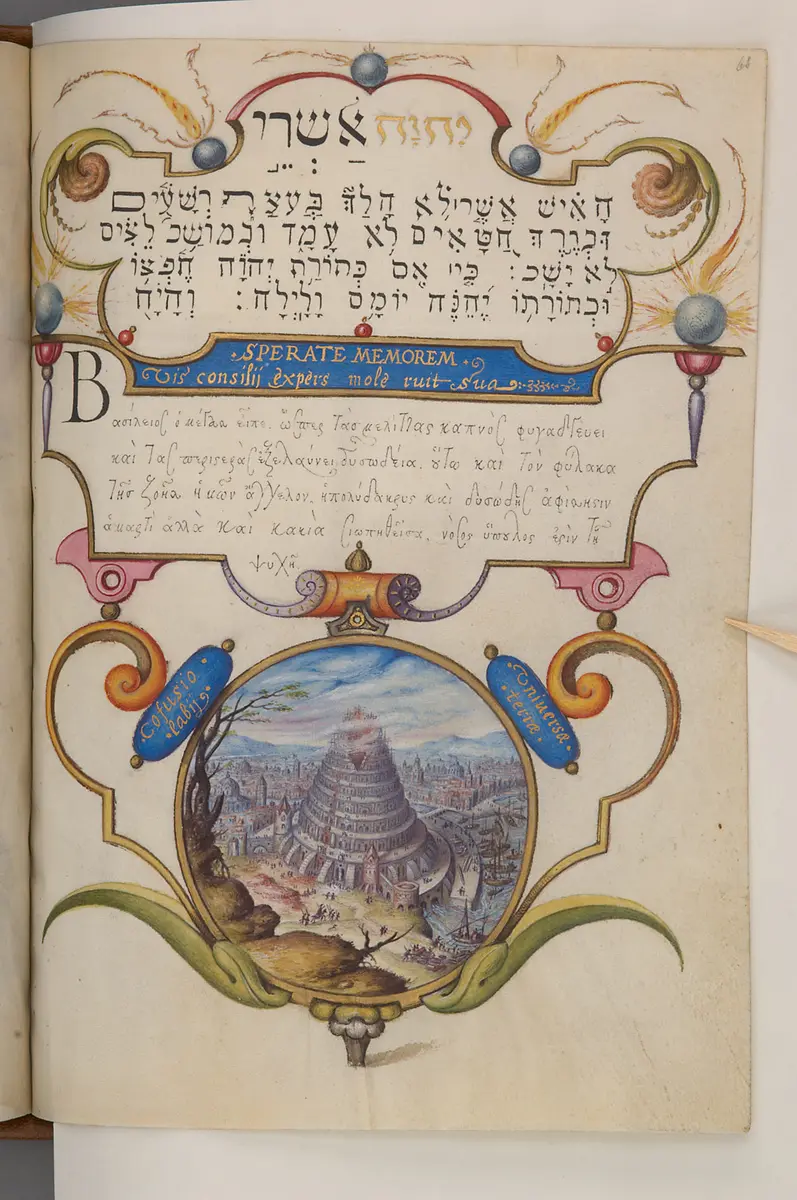 יהוה אשרי
האיש אשר לא הלך בעצת רשעים
ובדרך חטאים לא עמד ובמושב לצים
לא ישב: כי אם בתורת יהוה חפצו
ובתורתו יהגה יומם ולילה: והיה
SPERATE MEMOREM
Vis consilij expers mole ruit sua
Βασίλειος ὁ μέγας εἶπε. ὥσπερ τὰς μελίττας καπνὸς φυγαδεύει
καὶ τὰς περιστερὰς ἐξελαύνει δυσωδεία. οὕτω καὶ τὸν φύλακα
τῆς ἡμῶν ἄγγελον. ἡ πολύδακρυς καὶ δυσώδης
ἁμαρτί ἀλλὰ καὶ κακία σιωπηθεῖσα. νόσος ὕπουλος ἐστὶν τῇ
ψυχῇ.
Cofusio
labij
Vniuersæ
terræ